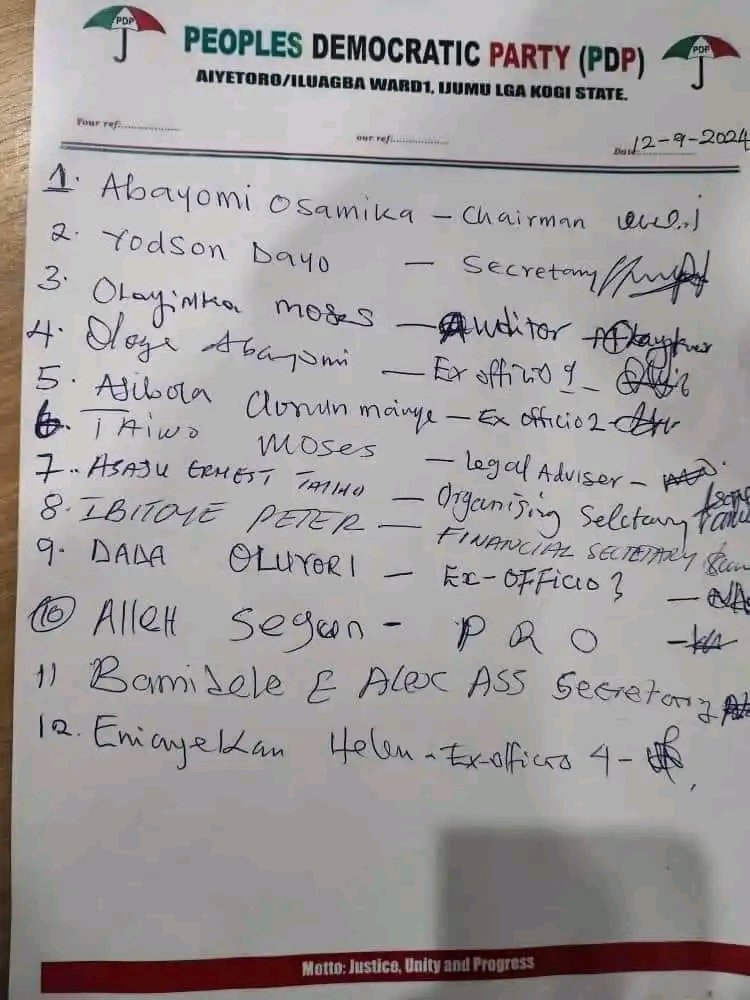 PDP
PDP
PEOPLES DEMOCRATIC PARTY (PDP)
AIYETORO/ILUAGBA WARD1, IJUMU LGA KOGI STATE.
Your ref:................
our ref:...............
Date 12-9-2024
1. Abayomi Osamika - Chairman
2. Yodson Dayo - Secretary
3. Olayinka moses - Auditor
4. Ologe Abayomi - Ex officio 1 -
5. Ajibola - Ex officio 2 -
6. TAiwo moses - Legal Adviser -
7. ASAJU ERNEST TAIWO - Organising Secretary
8. IBITOYE PETER - FINANCIAL SECRETARY
9. DADA OLUYORI - EX-OFFICIO 3 -
10 Alleh Segun - PRO -
11 Bamidele E Alex ASS Secretary
12. Eniayekan Helen - Ex-officio 4 -
Motto: Justice, Unity and Progress